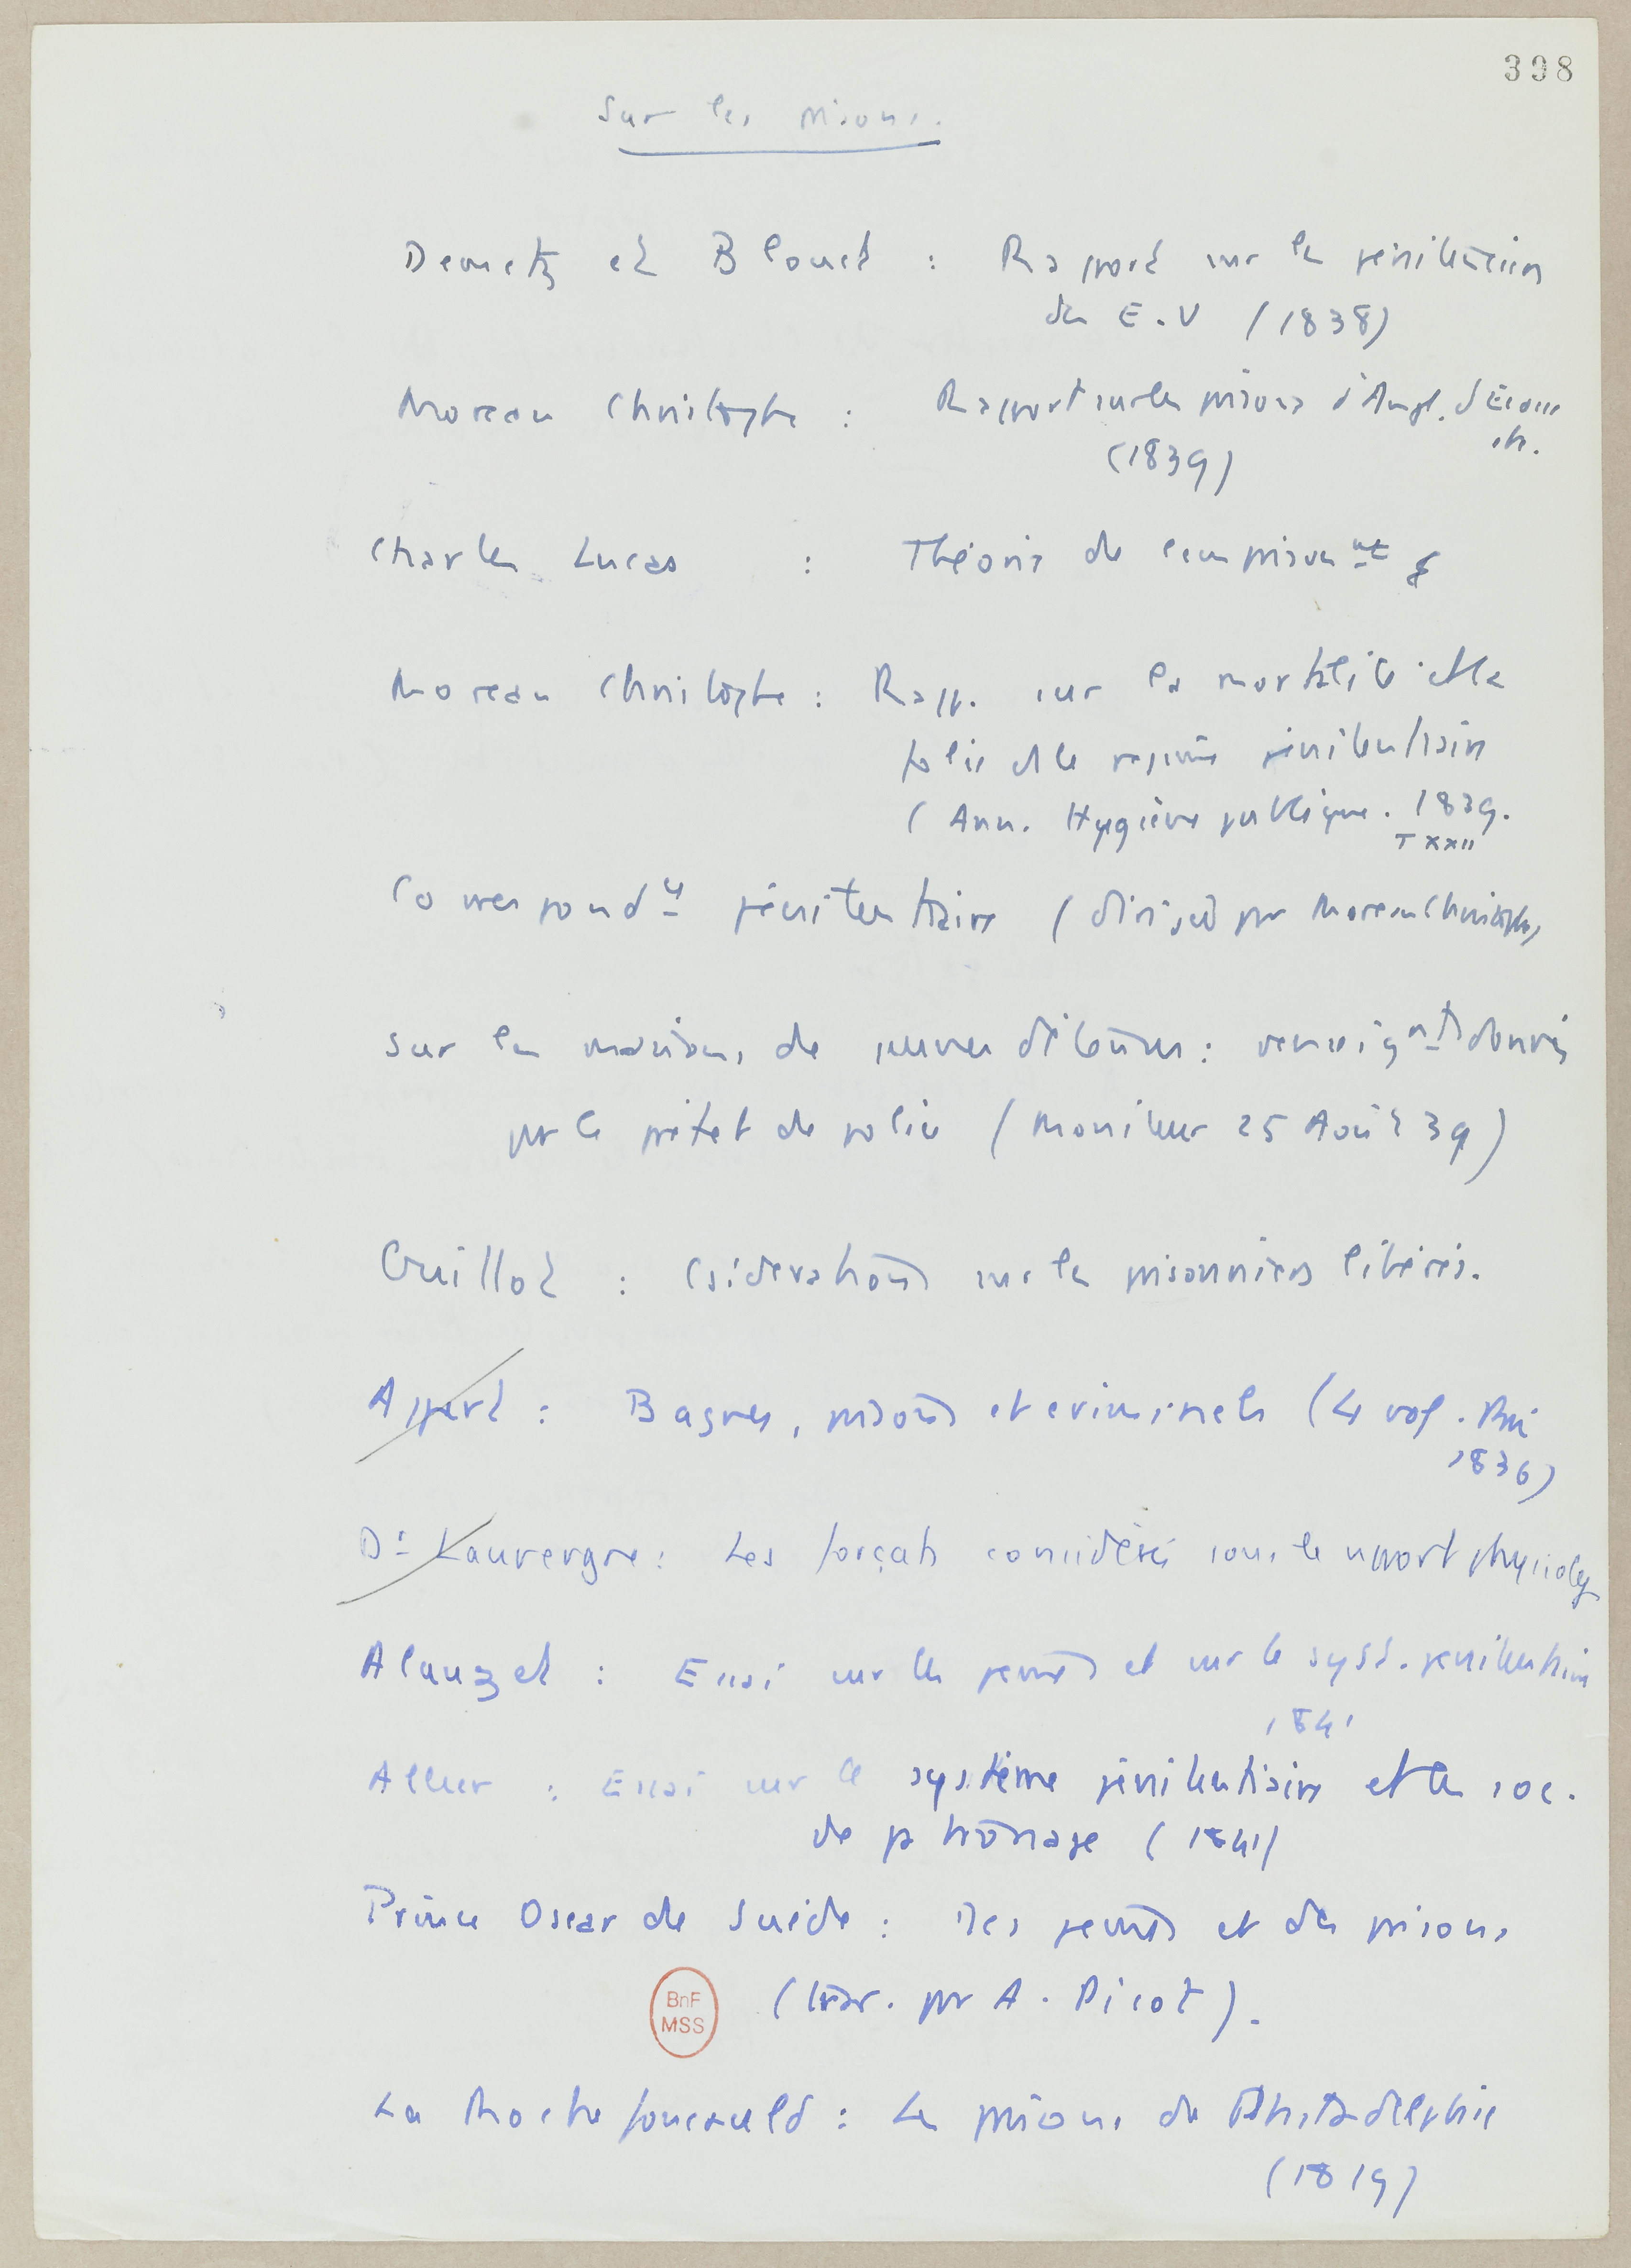 398
Sur les prisons.
Demetz et Blouet : Rapport sur les pénitenciers
des E.U (1838)
Moreau Christophe : Rapport sur les prisons d'Angl. d'Écosse
etc.
(1839)
Charles Lucas : Théorie de l'emprisonnt
Moreau Christophe : Rapp. sur la mortalité et la
folie ds le régime pénitentiaire
(Ann. Hygiène publique. 1839.
T XXII
Correspondce pénitentiaire (dirigée par Moreau Christophe)
Sur les maisons de jeunes détenus : renseignts donnés
par le préfet de police (Moniteur 25 Août 39)
Guillot : Csidérations sur les prisonniers libérés.
Appert : Bagnes, prisons et criminels (4 vol. Paris
1836)
Dr Lauvergne : Les forçats considérés sous le rapport physiolog
Alauzet : Essai sur les peines et sur le syst. pénitentiaire
1841
Allier : Essai sur le système pénitentiaire et les soc.
de patronage (1841)
Prince Oscar de Suède : Des peines et des prisons
(trad. par A. Picot).
BnF
MSS
La Rochefoucauld : Les prisons de Philadelphie
(1819)